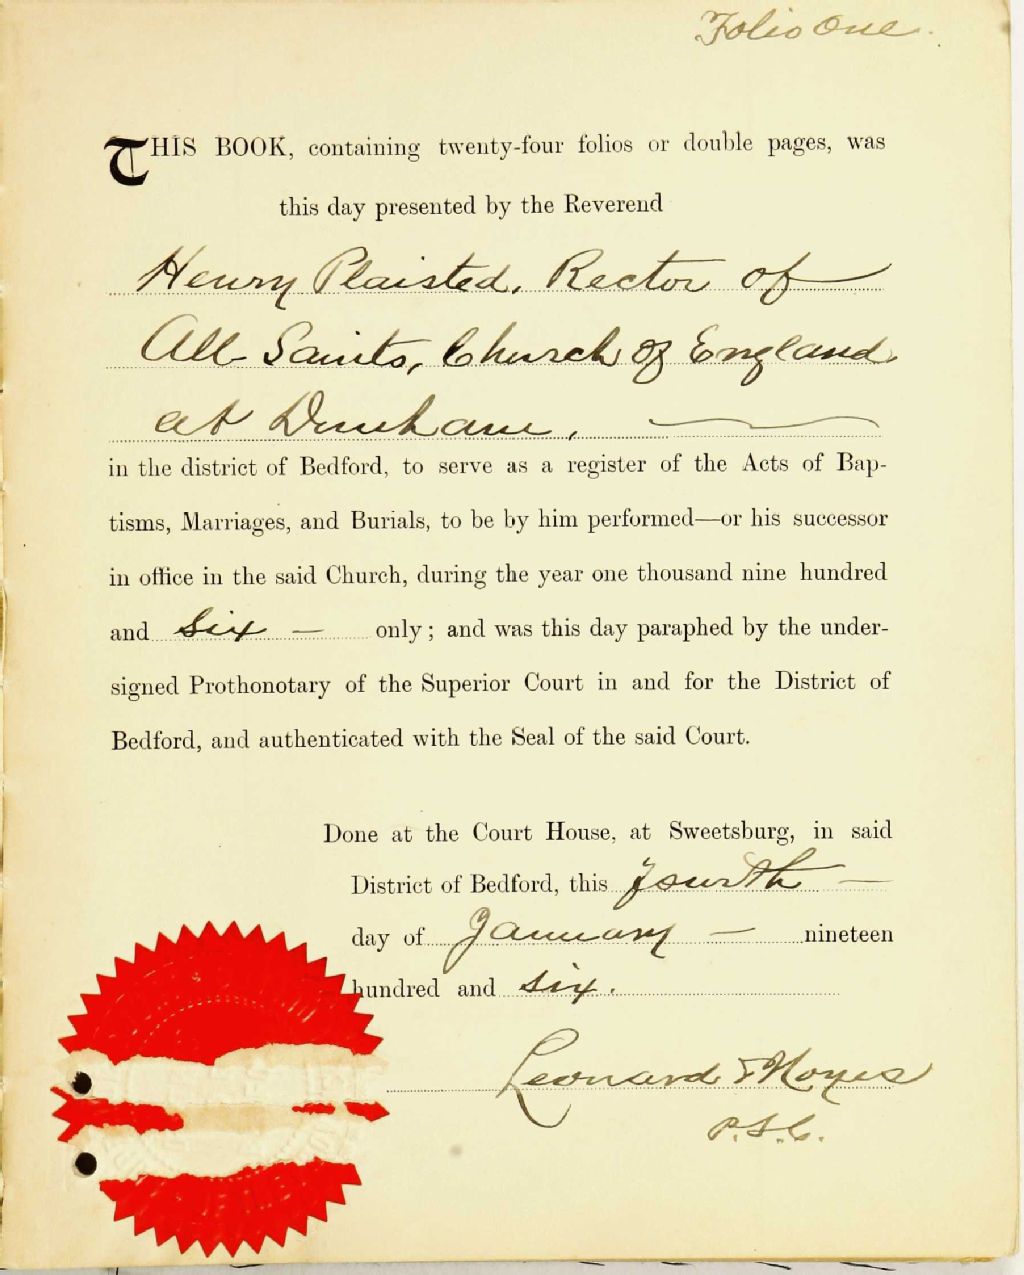 Folio One.
THIS BOOK, containing twenty-four folios or double pages, was
this day presented by the Reverend
Henry Plaisted, Rector of
All Saints, Church of England
at Dunham,
in the district of Bedford, to serve as a register of the Acts of Bap-
tisms, Marriages, and Burials, to be by him performed—or his successor
in office in the said Church, during the year one thousand nine hundred
and six — only; and was this day paraphed by the under-
signed Prothonotary of the Superior Court in and for the District of
Bedford, and authenticated with the Seal of the said Court.
Done at the Court House, at Sweetsburg, in said
District of Bedford, this fourth —
day of January — nineteen
hundred and six.
Leonard & Noyes
P.S.C.